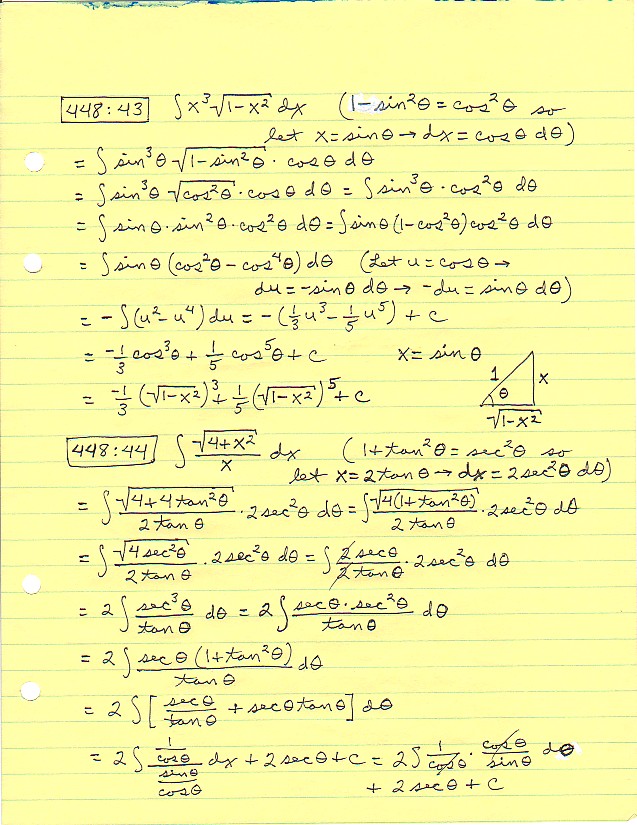 448:43 ∫x³√(1-x²) dx (1-sin²θ = cos²θ so
let x = sinθ → dx = cosθ dθ)
= ∫sin³θ √(1-sin²θ) · cosθ dθ
= ∫sin³θ √(cos²θ) · cosθ dθ = ∫sin³θ · cos²θ dθ
= ∫sinθ · sin²θ · cos²θ dθ = ∫sinθ(1-cos²θ)cos²θ dθ
= ∫sinθ(cos²θ - cos⁴θ)dθ (Let u = cosθ →
du = -sinθ dθ → -du = sinθ dθ)
= -∫(u² - u⁴)du = -(1/3 u³ - 1/5 u⁵) + c
= -1/3 cos³θ + 1/5 cos⁵θ + c x = sinθ
= -1/3 (√(1-x²))³ + 1/5 (√(1-x²))⁵ + c
1 θ x √(1-x²)
448:44 ∫ √(4+x²)/x dx (1+tan²θ = sec²θ so
let x = 2tanθ → dx = 2sec²θ dθ)
= ∫ √(4+4tan²θ)/(2tanθ) · 2sec²θ dθ = ∫ √(4(1+tan²θ))/(2tanθ) · 2sec²θ dθ
= ∫ √(4sec²θ)/(2tanθ) · 2sec²θ dθ = ∫ 2secθ/(2tanθ) · 2sec²θ dθ
= 2∫ sec³θ/tanθ dθ = 2∫ (secθ · sec²θ)/tanθ dθ
= 2∫ secθ(1+tan²θ)/tanθ dθ
= 2∫[secθ/tanθ + secθtanθ]dθ
= 2∫ (1/cosθ)/(sinθ/cosθ) dx + 2secθ + c = 2∫ 1/cosθ · cosθ/sinθ dθ
+ 2secθ + c